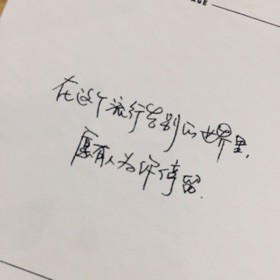 在这个流行告别的世界里，
愿有人为你停留.